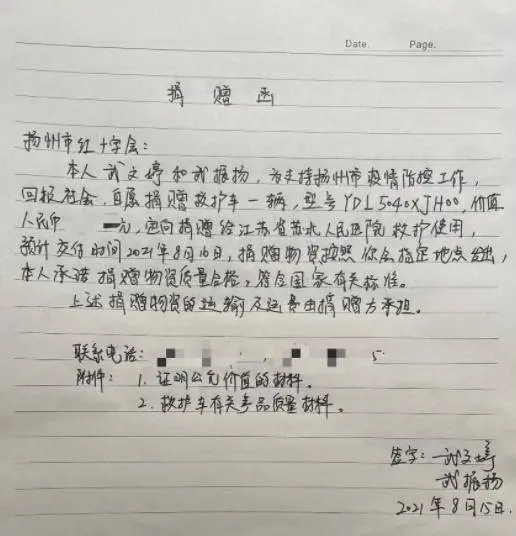 Date.      Page.
捐 赠 函
扬州市红十字会：
本人武文婷和武振扬，为支持扬州市疫情防控工作，
回报社会，自愿捐赠救护车一辆，型号YDL5040XJH00，价值
人民币 元，定向捐赠给江苏省苏北人民医院救护使用，
预计交付时间2021年8月16日，捐赠物资按照你会指定地点给出，
本人承诺捐赠物资质量合格，符合国家有关标准。
上述捐赠物资的运输及运费由捐赠方承担。
联系电话： 5
附件：1.证明公允价值的材料。
2.救护车有关产品质量材料。
签字：武文婷
武振扬
2021年8月15日.